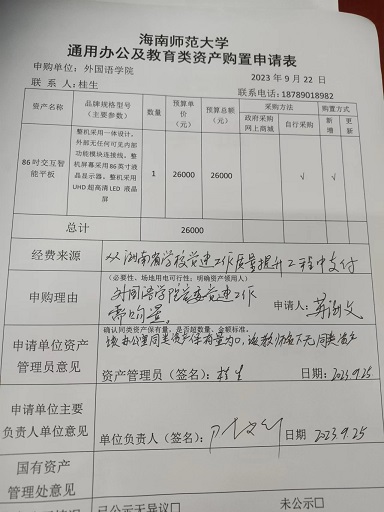 海南师范大学
通用办公及教育类资产购置申请表
申购单位：外国语学院 2023年9月22日
联系人：桂生 联系电话：18789018982
资产名称 品牌规格型号（主要参数） 数量 预算单价（元） 预算总额（元） 采购方法 购置方式
政府采购网上商城 自行采购 新增 更新
86吋交互智能平板 整机采用一体设计，外部无任何可见内部功能模块连接线。整机屏幕采用86英寸液晶显示器。整机采用UHD超高清LED 液晶屏 1 26000 26000 √ √
总计 26000
经费来源 从海南省学校党建工作质量提升工程中支付
申购理由 （必要性、场地用电可行性；明确资产领用人）
外国语学院党建工作
申请人：
申请单位资产管理员意见 确认同类资产保有量，是否超数量、金额标准。
该办公室同类资产保有量为0，名下无同类资产
资产管理员（签名）：桂生 日期：2023.9.25
申请单位主要负责人单位意见 单位负责人（签名）： 日期 2023.9.25
国有资产管理处意见
已公示无异议□ 未公示□